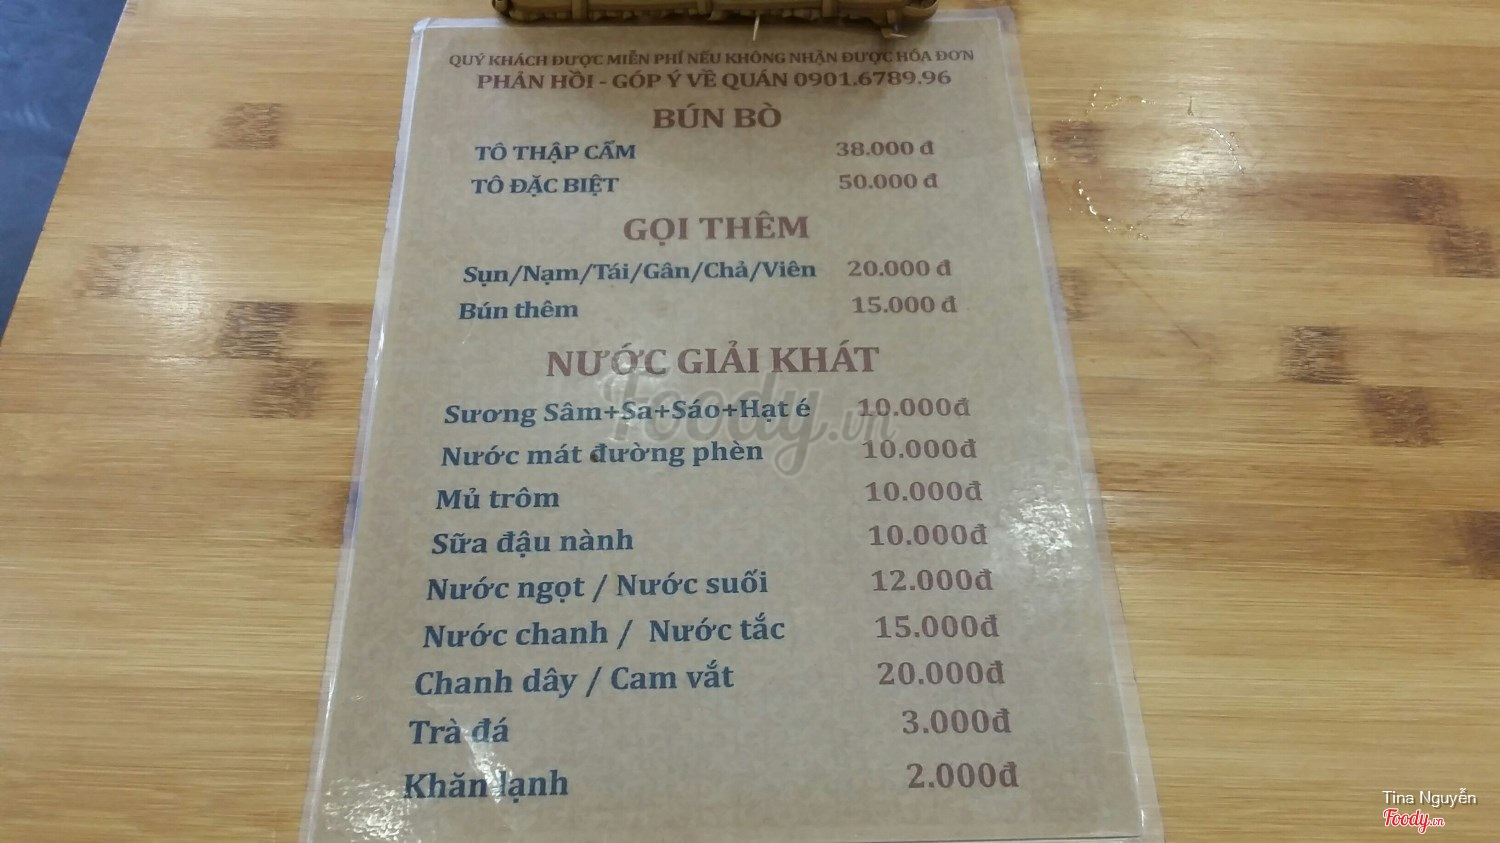 QUÝ KHÁCH ĐƯỢC MIỄN PHÍ NẾU KHÔNG NHẬN ĐƯỢC HÓA ĐƠN
PHẢN HỒI - GÓP Ý VỀ QUÁN 0901.6789.96
BÚN BÒ
TÔ THẬP CẨM 38.000 đ
TÔ ĐẶC BIỆT 50.000 đ
GỌI THÊM
Sụn/Nạm/Tái/Gân/Chả/Viên 20.000 đ
Bún thêm 15.000 đ
NƯỚC GIẢI KHÁT
Sương Sâm+Sa+Sáo+Hạt é 10.000đ
Foody.vn
Nước mát đường phèn 10.000đ
Mủ trôm 10.000đ
Sữa đậu nành 10.000đ
Nước ngọt / Nước suối 12.000đ
Nước chanh / Nước tắc 15.000đ
Chanh dây / Cam vắt 20.000đ
Trà đá 3.000đ
Khăn lạnh 2.000đ
Tina Nguyễn
Foody.vn